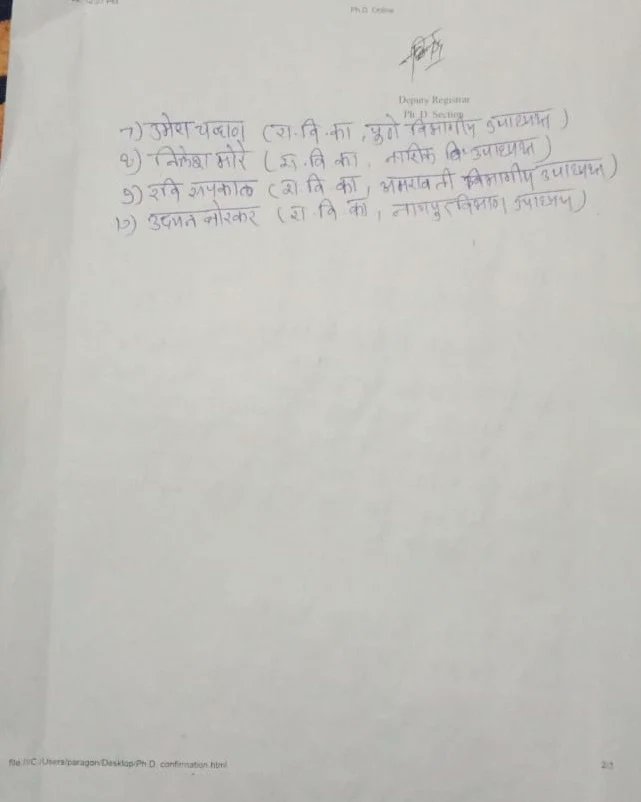 Ph.D. Online
Deputy Registrar
Ph. D. Section
७) उमेश चव्हाण (रा. वि. का, पुणे विभागीय उपाध्यक्ष)
८) निलेश मोरे (रा. वि. का, नाशिक वि. उपाध्यक्ष)
९) रवि सपकाळ (रा. वि. का, अमरावती विभागीय उपाध्यक्ष)
१०) उदयन बोरकर (रा. वि. का, नागपुर विभाग उपाध्यक्ष)
file:///C:/Users/paragon/Desktop/Ph.D. confirmation.html
2/3